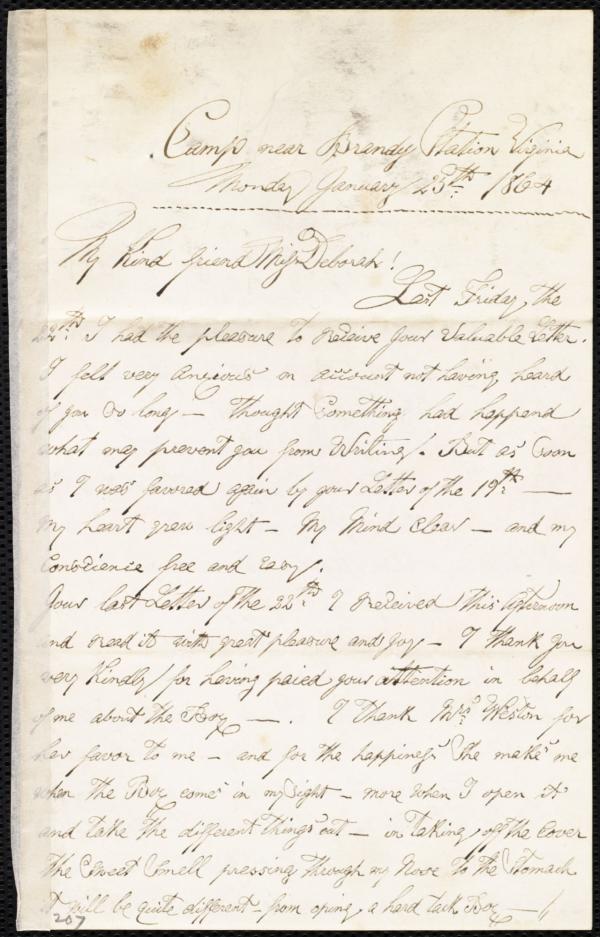 Camp near Brandy Station Virginia
Monday January 25th 1864
My Kind friend Miss Deborah!
Last Friday, the
22th I had the pleasure to receive your valuable Letter.
I felt very anxious on account not having heard
of you so long — thought Something had happend
what may prevent you from Writing. But as Soon
as I was favored again by your Letter of the 19th —
my heart grew light — My Mind Clear — and my
Conscience free and easy.
Your last Letter of the 22th I received this Afternoon
and read it with great pleasure and joy — I thank you
very Kindly for having paied your attention in behalf
of me about the Box —. I thank Mrs Weston for
her favor to me — and for the happiness She makes me
when the Box comes in my Sight — more when I open it
and take the different things out — in taking off the Cover
the Sweet Smell pressing through my Nose to the Stomach
It will be quite different — from oping a hard tack Box —
207